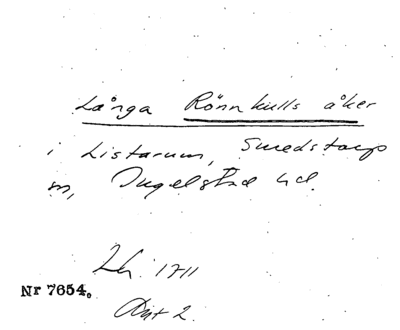 Långa Rönnkulls åker
i Listarum, Smedstorps
sn, Ingelstad hd.
Lh. 1711
Nr 7654.
Akt 2.